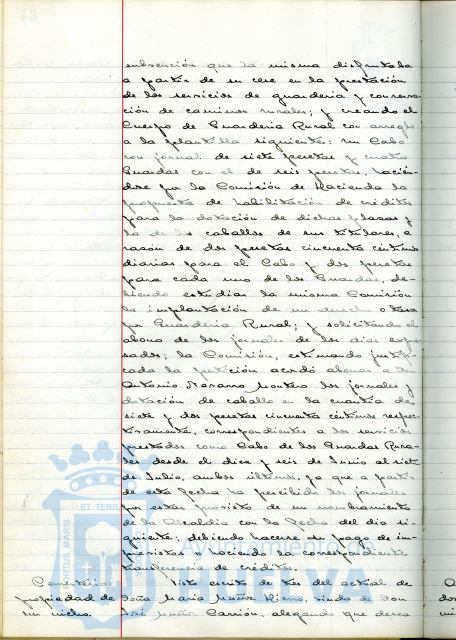 subvención que la misma disfrutaba
a partir de su cese en la prestación
de los servicios de guardería y conserva-
ción de caminos rurales; y creando el
Cuerpo de Guardería Rural con arreglo
a la plantilla siguiente: un Cabo
con jornal de siete pesetas y cuatro
Guardas con el de seis pesetas, hacién-
dose por la Comisión de Hacienda la
propuesta de habilitación de créditos
para la dotación de dichas plazas y
la de los caballos de sus titulares, a
razón de dos pesetas cincuenta céntimos
diarias para el Cabo y dos pesetas
para cada uno de los Guardas, de-
biendo estudiar la misma Comisión
la implantación de un derecho o tasa
por Guardería Rural; y solicitando el
abono de los jornales de los días expre-
sados; la Comisión, estimando justifi-
cada la petición acordó abonar a Don
Antonio Navarro Montero los jornales y
dotación de caballo en la cuantía de
siete y dos pesetas cincuenta céntimos respec-
tivamente, correspondientes a los servicios
prestados como Cabo de los Guardas Rura-
les desde el diez y seis de Junio al siete
de Julio, ambos últimos, ya que a partir
de esta fecha ha percibido los jornales
por estar provisto de un nombramiento
de la Alcaldía con la fecha del día si-
guiente; debiendo hacerse su pago de im-
previstos haciendo la correspondiente
transferencia de créditos.
Cementerios Visto escrito de tres del actual de
propiedad de Doña María Muñiz Rizo, viuda de Don
un nicho. José Muñiz Carrión, alegando que desea
ET TERRA
PORTUS MARIS
Ayuntamiento de
HUELVA